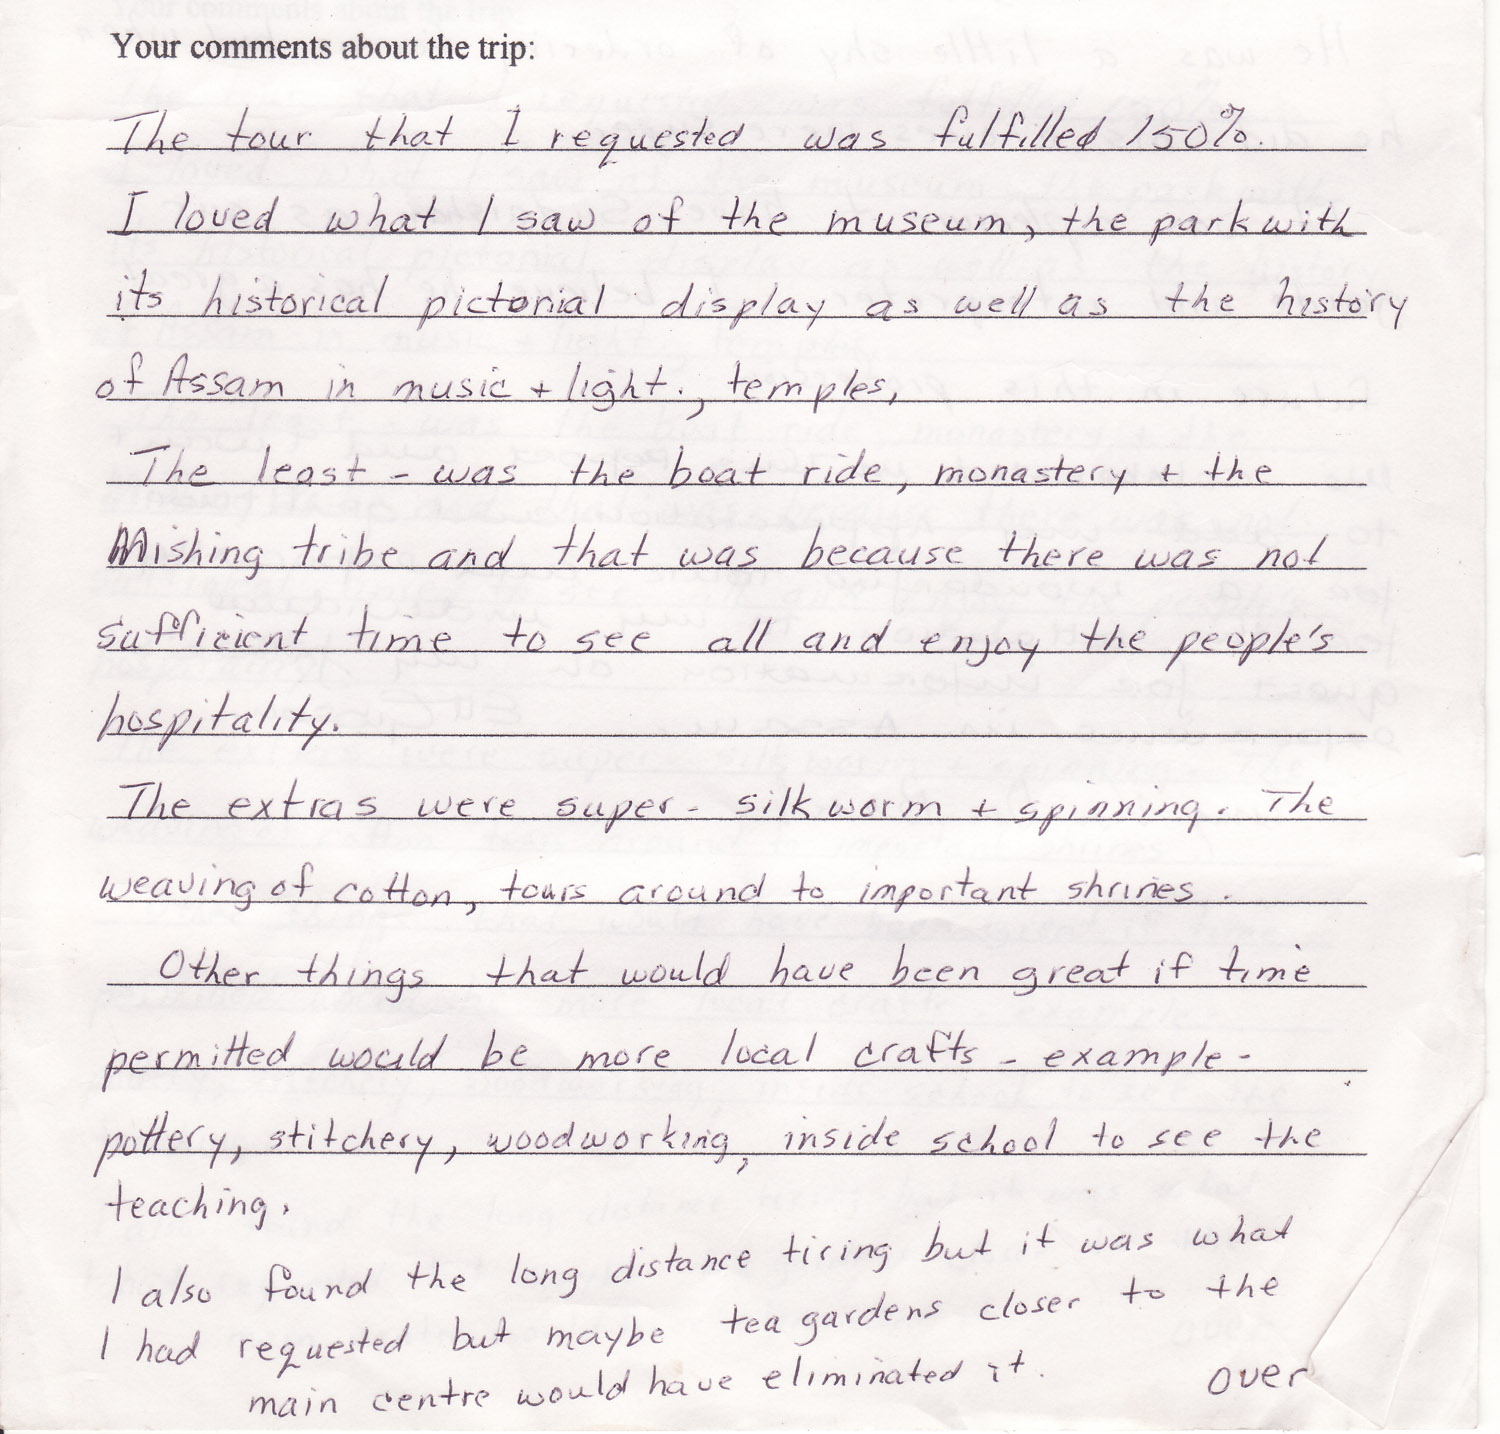 Your comments about the trip:
The tour that I requested was fulfilled 150%.
I loved what I saw of the museum, the park with
its historical pictorial display as well as the history
of Assam in music + light., temples,
The least - was the boat ride, monastery + the
Mishing tribe and that was because there was not
sufficient time to see all and enjoy the people's
hospitality.
The extras were super - silk worm + spinning. The
weaving of cotton, tours around to important shrines.
Other things that would have been great if time
permitted would be more local crafts - example -
pottery, stitchery, woodworking, inside school to see the
teaching.
I also found the long distance tiring but it was what
I had requested but maybe tea gardens closer to the
main centre would have eliminated it.
over